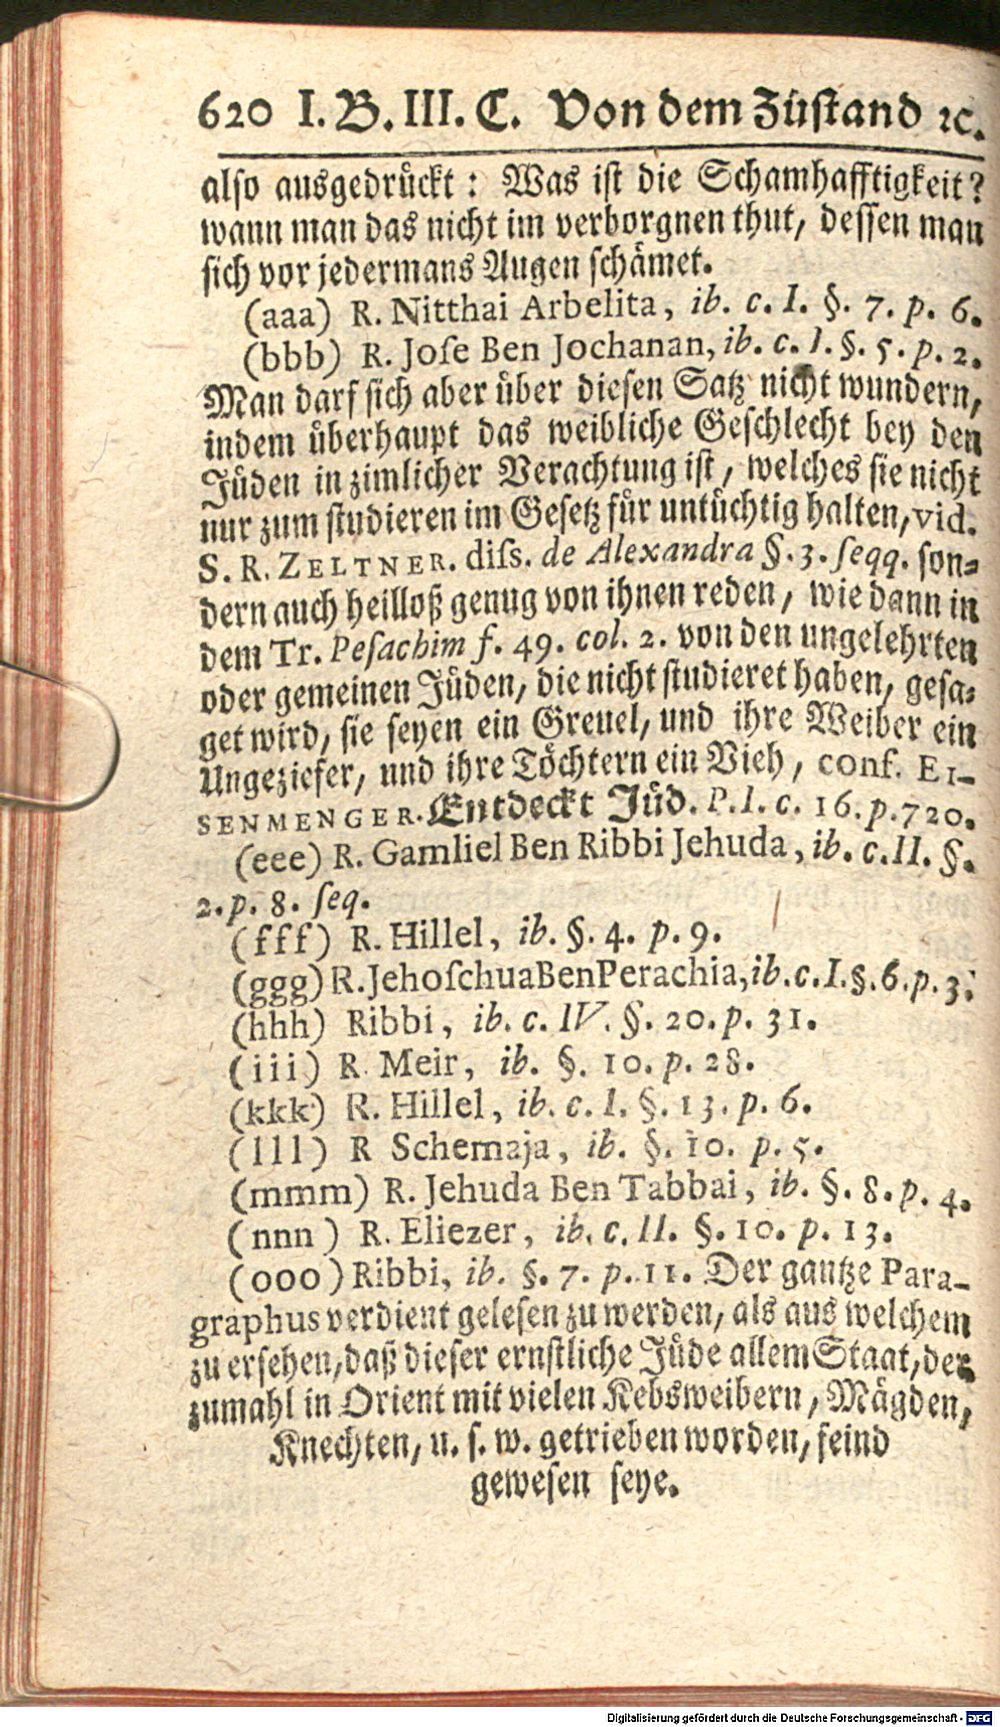 620 I. B. III. C. Von dem Züstand ꝛc.
also ausgedrückt: Was ist die Schamhafftigkeit?
wann man das nicht im verborgnen thut, dessen man
sich vor jedermans Augen schämet.
(aaa) R. Nitthai Arbelita, ib. c. I. §. 7. p. 6.
(bbb) R. Joſe Ben Jochanan, ib. c. I. §. 5. p. 2.
Man darf sich aber über diesen Satz nicht wundern,
indem überhaupt das weibliche Geschlecht bey den
Jüden in zimlicher Verachtung ist, welches sie nicht
nur zum studieren im Gesetz für untüchtig halten, vid.
S. R. ZELTNER. diſs. de Alexandra §. 3. ſeqq. son⸗
dern auch heilloß genug von ihnen reden, wie dann in
dem Tr. Peſachim f. 49. col. 2. von den ungelehrten
oder gemeinen Jüden, die nicht studieret haben, gesa⸗
get wird, sie seyen ein Greuel, und ihre Weiber ein
Ungeziefer, und ihre Töchtern ein Vieh, conf. EI-
SENMENGER. Entdeckt Jüd. P. I. c. 16. p. 720.
(eee) R. Gamliel Ben Ribbi Jehuda, ib. c. II. §.
2. p. 8. ſeq.
(fff) R. Hillel, ib. §. 4. p. 9.
(ggg) R. Jehoſchua Ben Perachia, ib. c. I. §. 6. p. 3.
(hhh) Ribbi, ib. c. IV. §. 20. p. 31.
(iii) R. Meir, ib. §. 10. p. 28.
(kkk) R. Hillel, ib. c. I. §. 13. p. 6.
(lll) R Schemaja, ib. §. 10. p. 5.
(mmm) R. Jehuda Ben Tabbai, ib. §. 8. p. 4.
(nnn) R. Eliezer, ib. c. II. §. 10. p. 13.
(ooo) Ribbi, ib. §. 7. p. 11. Der gantze Para-
graphus verdient gelesen zu werden, als aus welchem
zu ersehen, daß dieser ernstliche Jüde allem Staat, der
zumahl in Orient mit vielen Kebsweibern, Mägden,
Knechten, u. s. w. getrieben worden, feind
gewesen seye.
Digitalisierung gefördert durch die Deutsche Forschungsgemeinschaft - DFG